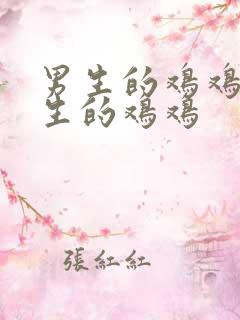 男生的鸡鸡
生的鸡鸡
張紅紅